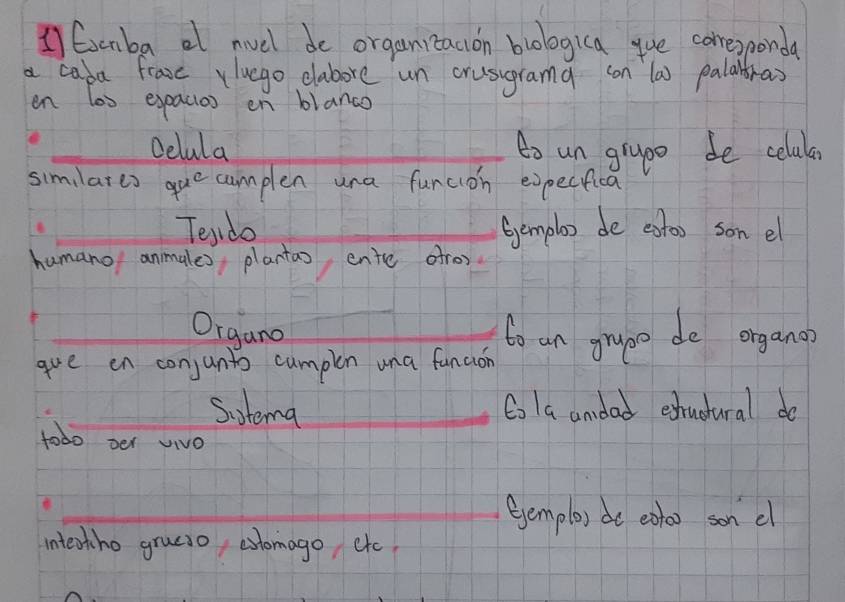 1) Escriba el nivel de organización biologica que corresponda
a cada frase y luego elabore un crusigrama con las palabras
en los espacios en blanco
Celula Es un grupo de celulas
similares que cumplen una función especifica
Tejido Ejemplos de estos son el
humano, animales, plantas, entre otros.
Organo Es un grupo de organos
que en conjunto cumplen una función
Sistema Es la unidad estructural de
todo ser vivo
Ejemplos de estos son el
intestino grueso, estomago, etc.